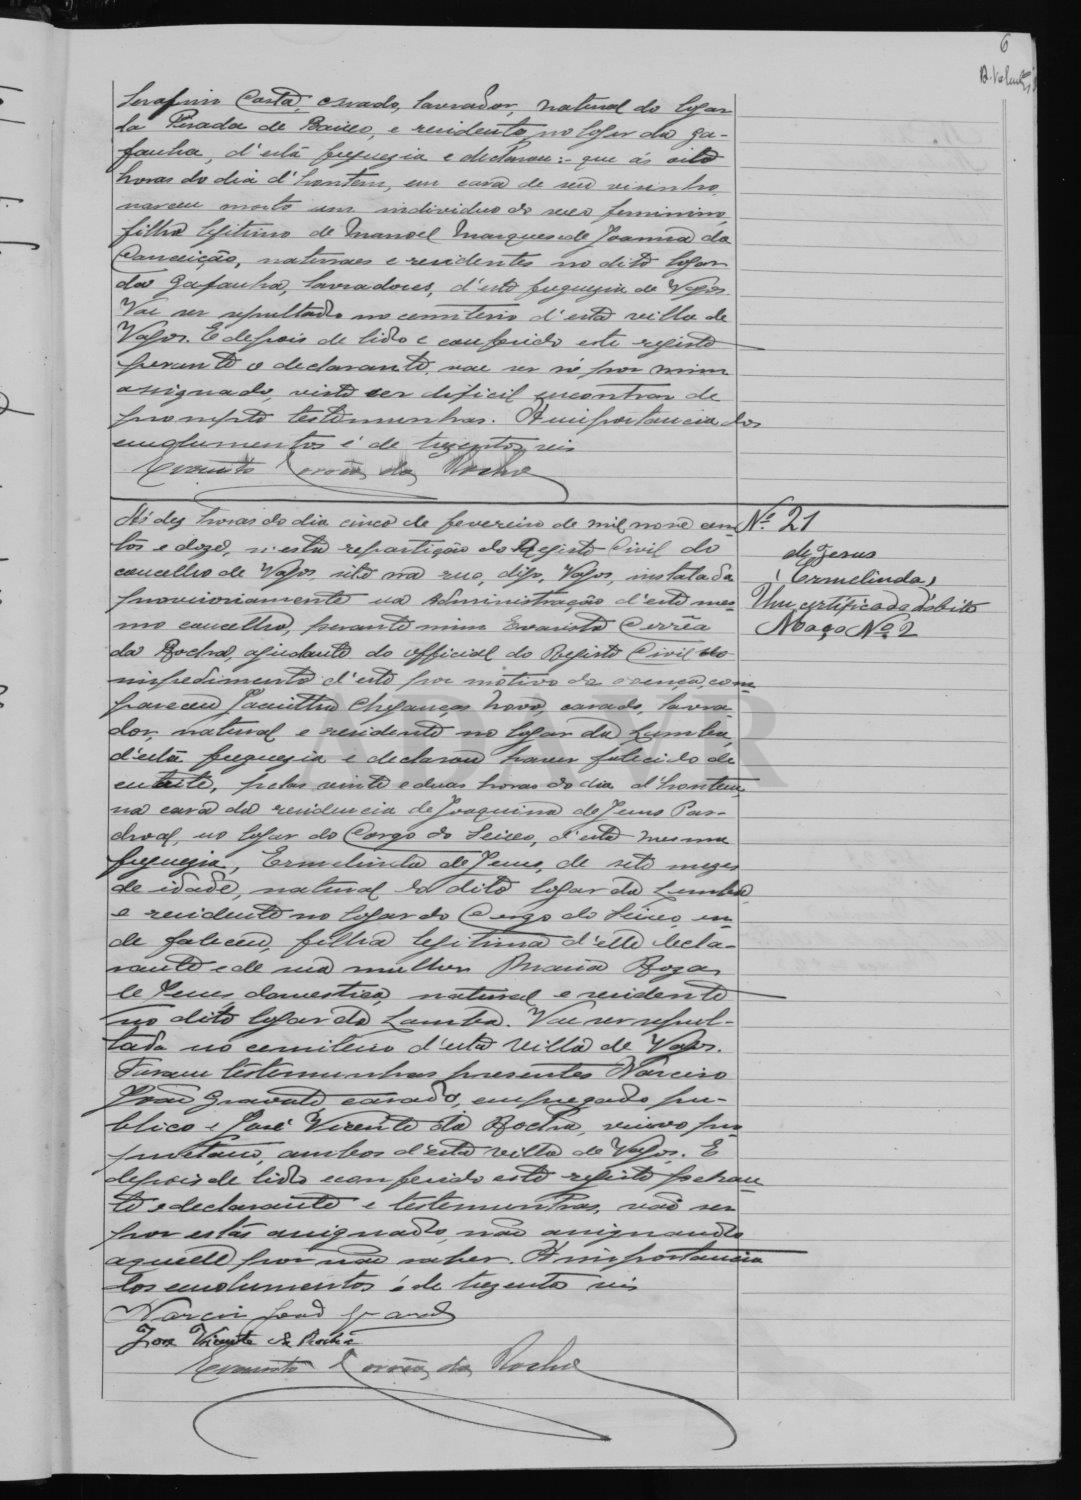 6
Serafim Costa, casado, lavrador, natural do logar
da Pirada de Baixo, e residente no logar da Ga-
fanha, d'esta freguezia e declarou:- que ás oito
horas do dia d'hontem, em casa de seu visinho
nasceu morto um individuo do sexo feminino,
filho legitimo de Manoel Marques e de Joanna da
Conceição, naturaes e residentes no dito logar
da Gafanha, lavradores, d'esta freguezia de Vagos.
Vae ser sepultado no cemiterio d'esta villa de
Vagos. E depois de lido e conferido este registo
perante o declarante, vae ser só por mim
assignado, visto ser dificil encontrar de
prompto testemunhas. A importancia dos
emolumentos é de trezentos reis
Evaristo Corrêa da Rocha
Nº 21
de Jesus
Ermelinda,
Um certificado d'obito
Maço Nº 2
Ás dez horas do dia cinco de fevereiro de mil nove cen-
tos e doze, n'esta repartição do Registo Civil do
concelho de Vagos, sito na rua, digo, Vagos, instalada
provisoriamente na Administração d'este mes-
mo concelho, perante mim Evaristo Corrêa
da Rocha, ajudante do official do Registo Civil no
impedimento d'este por motivo de doença, com-
pareceu Jacintho Chegancas Novo, casado, lavra-
dor, natural e residente no logar da Lomba,
d'esta freguezia e declarou haver falecido de
enterite, pelas vinte e duas horas do dia d'hontem,
na casa da residencia de Joaquina de Jesus Pas-
choal, no logar do Corgo do Seixo, d'esta mesma
freguezia, Ermelinda de Jesus, de sete mezes
de idade, natural do dito logar da Lomba,
e residente no logar do Corgo do Seixo, on-
de faleceu, filha legitima d'elle decla-
rante e de sua mulher Maria Roza
de Jesus, domestica, natural e residente
no dito logar da Lomba. Vae ser sepul-
tada no cemiterio d'esta villa de Vagos.
Foram testemunhas presentes Narciso
João Gravato casado, empregado pu-
blico e José Vicente da Rocha, viuvo pro-
prietario, ambos d'esta villa de Vagos. E
depois de lido e conferido este registo peran-
te o declarante e testemunhas, vae ser
por estas assignado, não assignando
aquelle por não saber. A importancia
dos emolumentos é de trezentos reis
Narciso João Gravato
José Vicente da Rocha
Evaristo Corrêa da Rocha
ADAVR